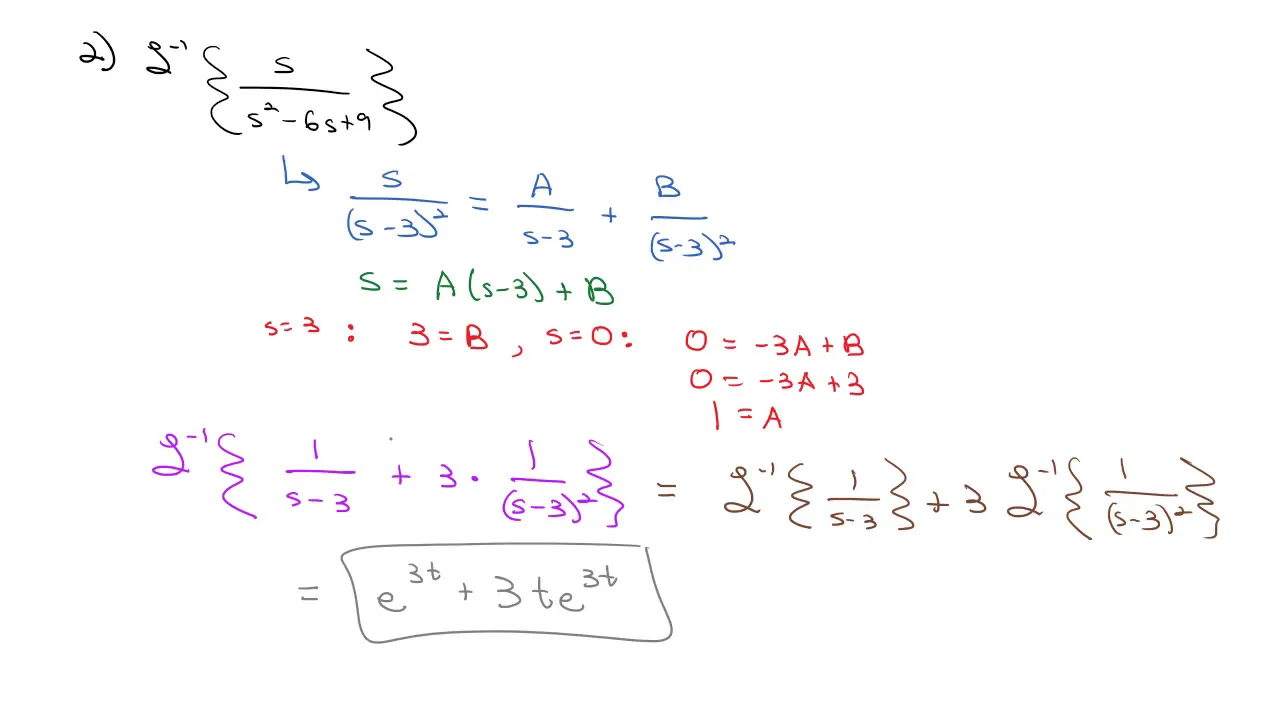 2) ℒ⁻¹ { s / (s² - 6s + 9) }
↳ s / (s-3)² = A / (s-3) + B / (s-3)²
s = A(s-3) + B
s=3 : 3 = B , s=0: 0 = -3A + B
0 = -3A + 3
1 = A
ℒ⁻¹ { 1 / (s-3) + 3 · 1 / (s-3)² } = ℒ⁻¹ { 1 / (s-3) } + 3 ℒ⁻¹ { 1 / (s-3)² }
= e^{3t} + 3te^{3t}